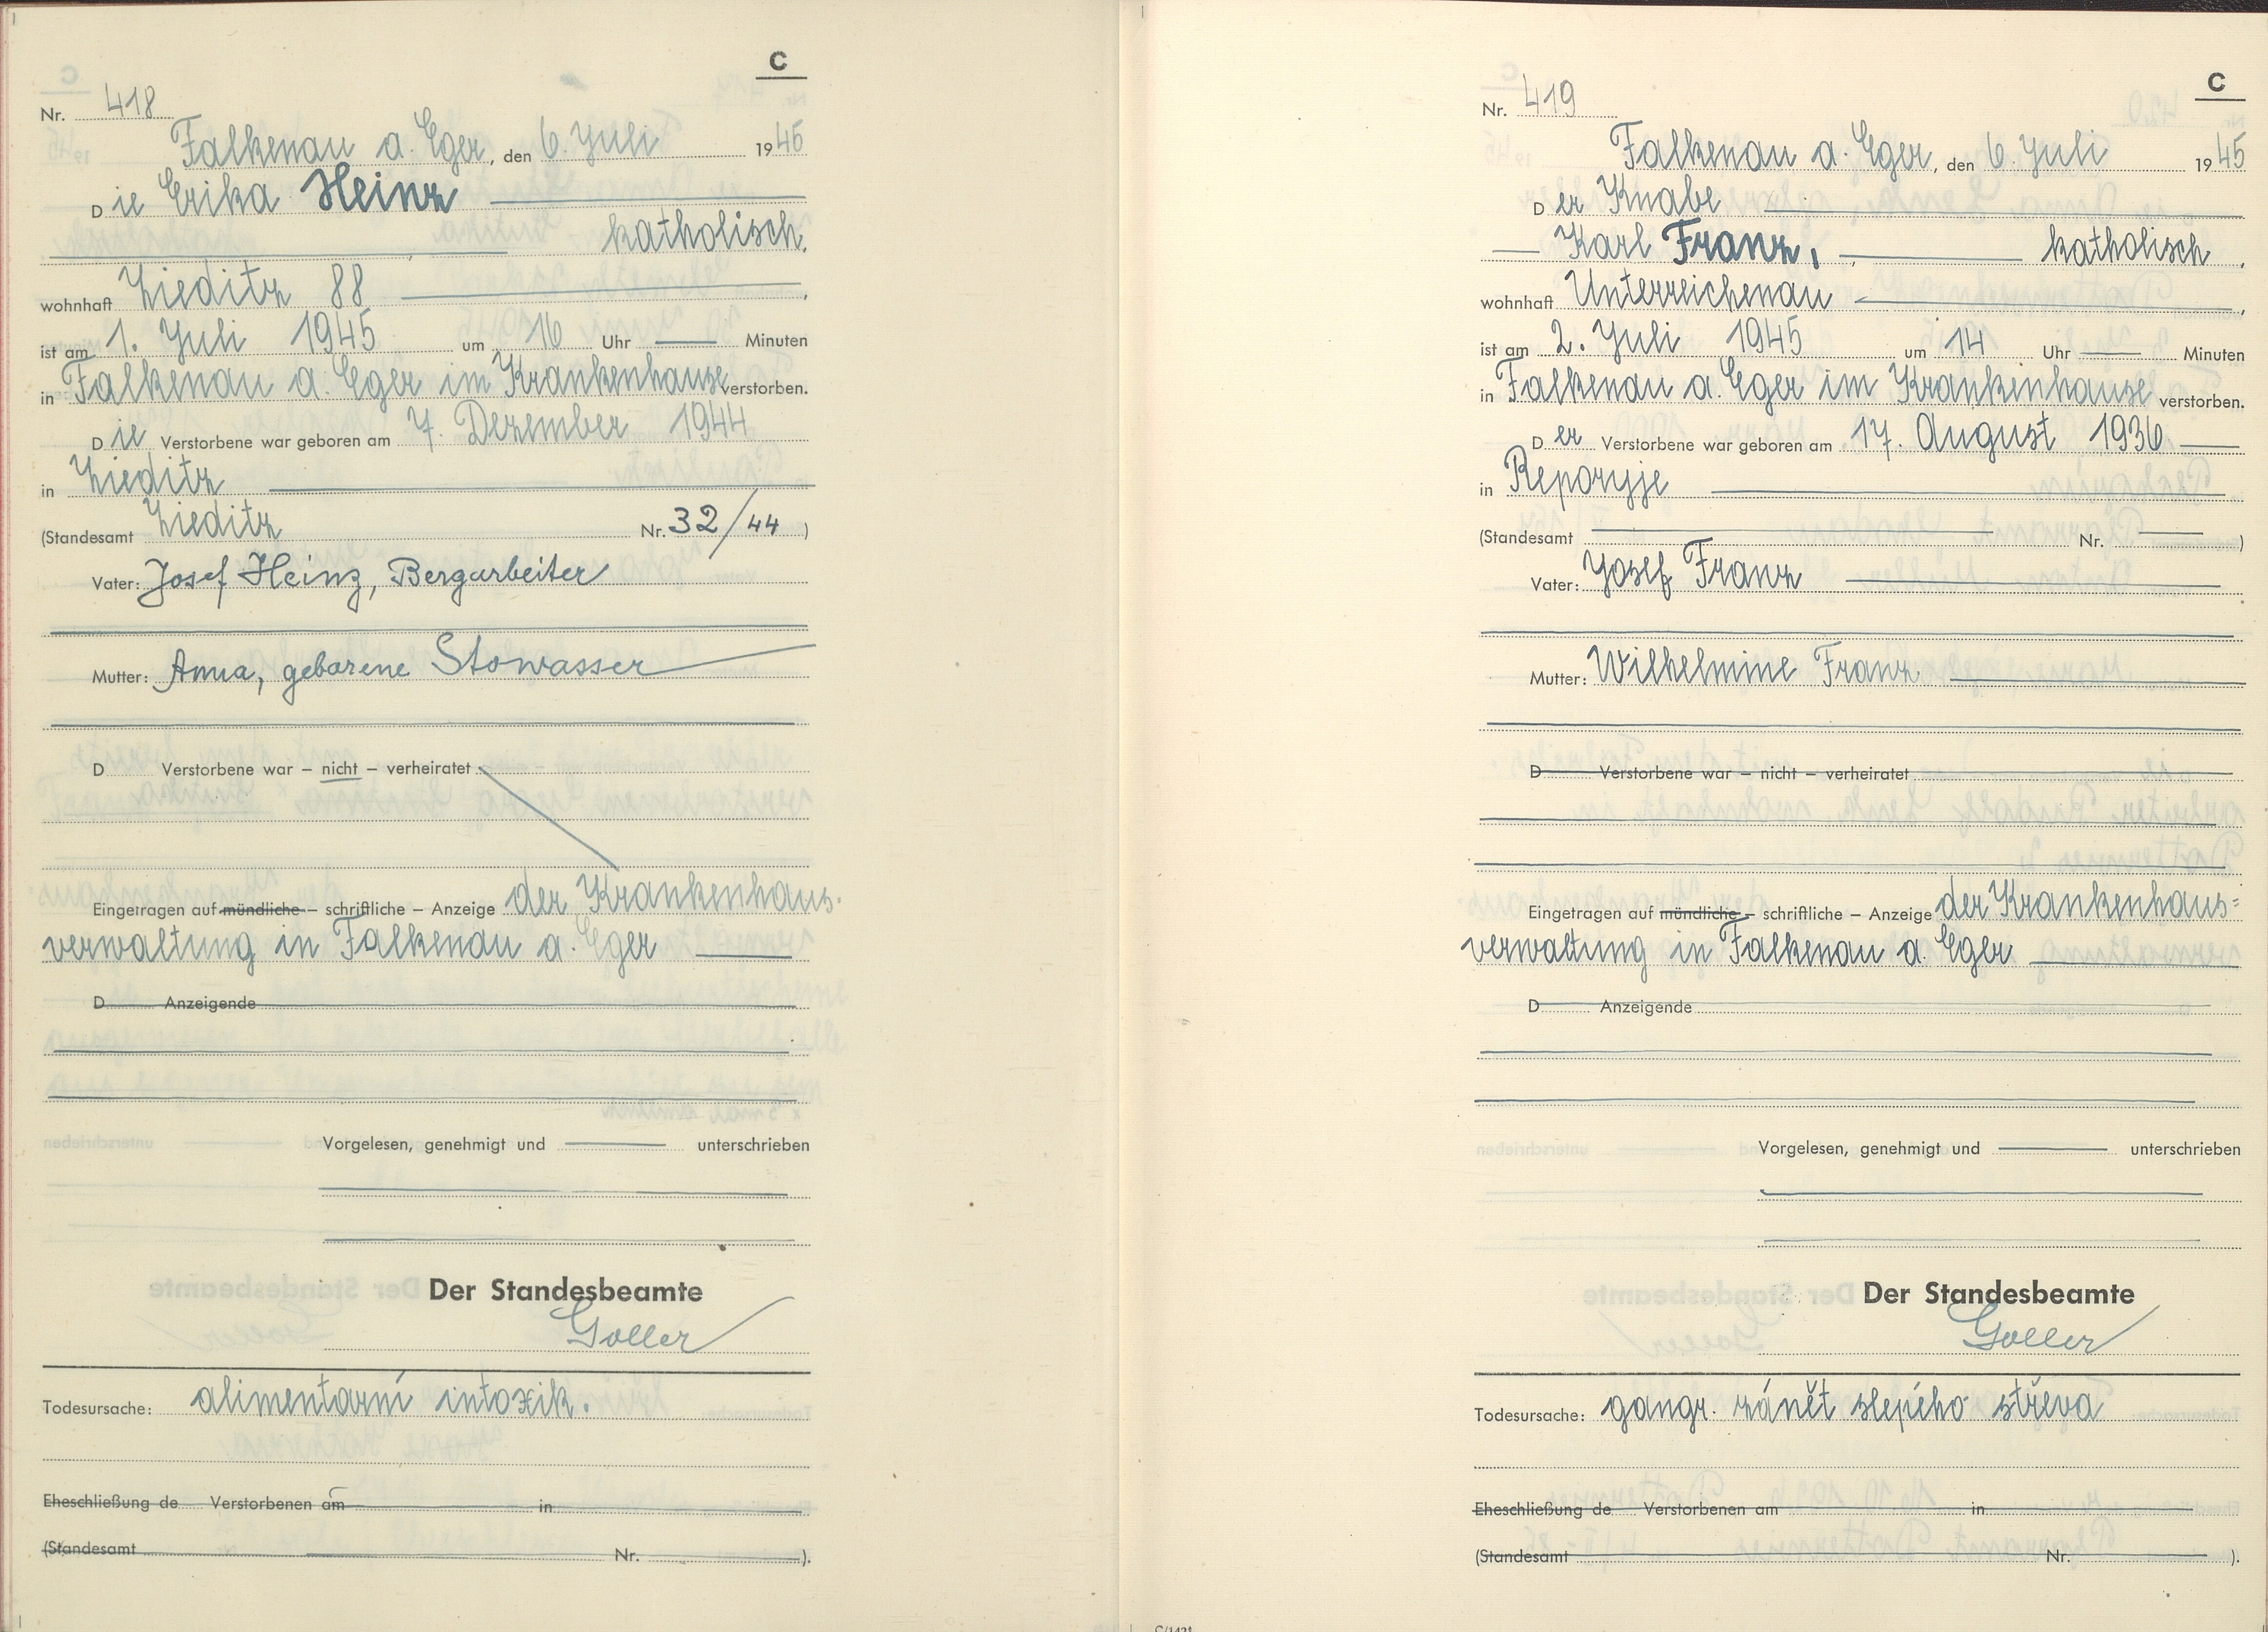 C
Nr. 418
Falkenau a. Eger, den 6. Juli 1945
Die Erika Heinz
katholisch,
wohnhaft Zieditz 88
ist am 1. Juli 1945 um 16 Uhr Minuten
in Falkenau a. Eger im Krankenhause verstorben.
Die Verstorbene war geboren am 7. Dezember 1944
in Zieditz
(Standesamt Zieditz Nr. 32/44)
Vater: Josef Heinz, Bergarbeiter
Mutter: Anna, geborene Stowasser
D Verstorbene war – nicht – verheiratet
Eingetragen auf mündliche – schriftliche – Anzeige der Krankenhaus-
verwaltung in Falkenau a. Eger
D Anzeigende
Vorgelesen, genehmigt und unterschrieben
Der Standesbeamte
Goller
Todesursache: alimentarní intoxik.
Eheschließung de Verstorbenen am in
(Standesamt Nr. ).
C
Nr. 419
Falkenau a. Eger, den 6. Juli 1945
Der Knabe
Karl Franz, katholisch,
wohnhaft Unterreichenau,
ist am 2. Juli 1945 um 14 Uhr Minuten
in Falkenau a. Eger im Krankenhause verstorben.
Der Verstorbene war geboren am 17. August 1936
in Reporyje
(Standesamt Nr. )
Vater: Josef Franz
Mutter: Wilhelmine Franz
D Verstorbene war – nicht – verheiratet
Eingetragen auf mündliche – schriftliche – Anzeige der Krankenhaus=
verwaltung in Falkenau a. Eger
D Anzeigende
Vorgelesen, genehmigt und unterschrieben
Der Standesbeamte
Goller
Todesursache: gangr. zánět slepého střeva
Eheschließung de Verstorbenen am in
(Standesamt Nr. ).